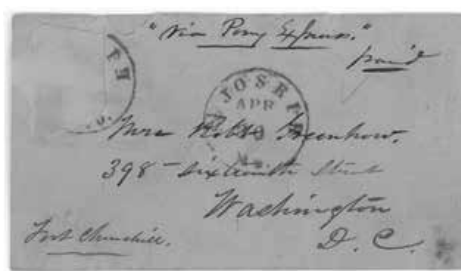 "Via Pony Express."
paid
PH
JOSEPH
APR
Mo.
Mrs Robt Greenhow.
398 - Sixteenth Street
Washington
Fort Churchill.
D. C.